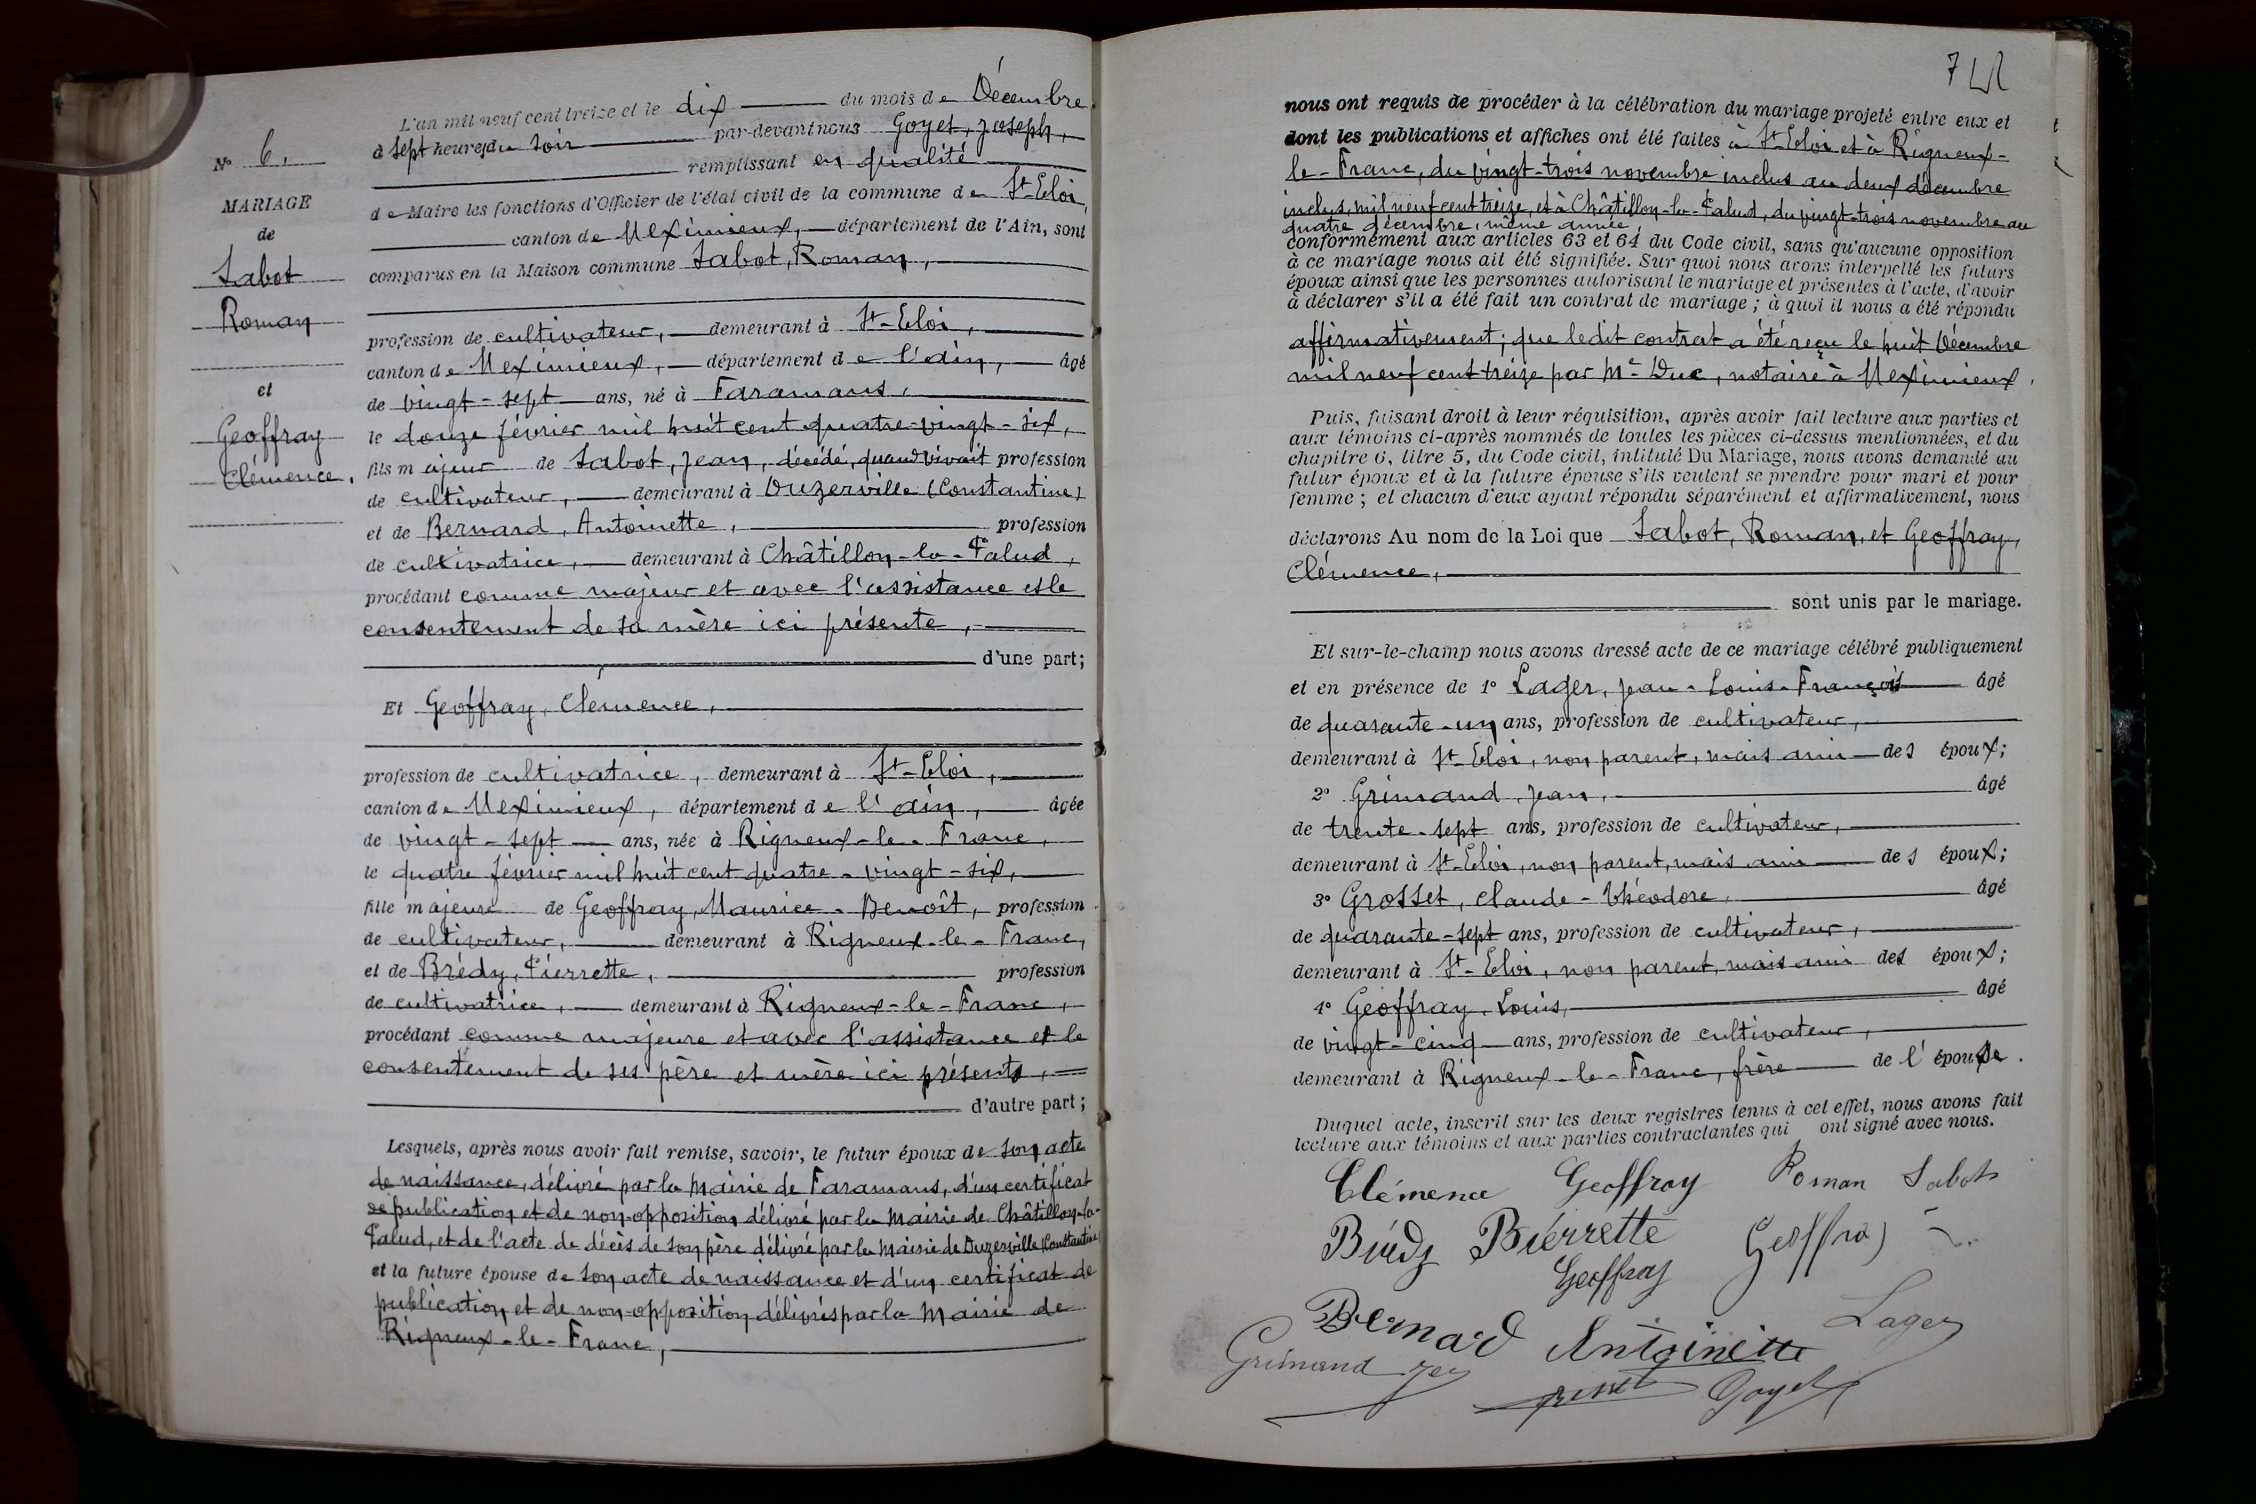 N° 6.
MARIAGE
de
Sabot
Roman
et
Geoffray
Clémence.
L'an mil neuf cent treize et le dix du mois de Décembre
à sept heures du soir par-devant nous Goyet, Joseph,
remplissant en qualité
de Maire les fonctions d'Officier de l'état civil de la commune de St-Eloi,
canton de Meximieux, département de l'Ain, sont
comparus en la Maison commune Sabot, Roman,
profession de cultivateur, demeurant à St-Eloi,
canton de Meximieux, département de l'Ain, âgé
de vingt-sept ans, né à Faramans,
le douze février mil huit cent quatre-vingt-six,
fils majeur de Sabot, Jean, décédé, quand vivait profession
de cultivateur, demeurant à Duzerville (Constantine)
et de Bernard, Antoinette, profession
de cultivatrice, demeurant à Châtillon-la-Palud,
procédant comme majeur et avec l'assistance et le
consentement de sa mère ici présente,
d'une part;
Et Geoffray, Clémence,
profession de cultivatrice, demeurant à St-Eloi,
canton de Meximieux, département de l'Ain, âgée
de vingt-sept ans, née à Rigneux-le-Franc,
le quatre février mil huit cent quatre-vingt-six,
fille majeure de Geoffray, Maurice-Benoît, profession
de cultivateur, demeurant à Rigneux-le-Franc,
et de Brédy, Pierrette, profession
de cultivatrice, demeurant à Rigneux-le-Franc,
procédant comme majeure et avec l'assistance et le
consentement de ses père et mère ici présents,
d'autre part;
Lesquels, après nous avoir fait remise, savoir, le futur époux de son acte
de naissance, délivré par la Mairie de Faramans, d'un certificat
de publication et de non-opposition délivré par la Mairie de Châtillon-la-
Palud, et de l'acte de décès de son père délivré par la Mairie de Duzerville (Constantine)
et la future épouse de son acte de naissance et d'un certificat de
publication et de non-opposition délivrés par la Mairie de
Rigneux-le-Franc,
nous ont requis de procéder à la célébration du mariage projeté entre eux et
dont les publications et affiches ont été faites à St-Eloi et à Rigneux-
le-Franc, du vingt-trois novembre inclus au deux décembre
inclus, mil neuf cent treize, et à Châtillon-la-Palud, du vingt-trois novembre au
quatre décembre, même année,
conformément aux articles 63 et 64 du Code civil, sans qu'aucune opposition
à ce mariage nous ait été signifiée. Sur quoi nous avons interpellé les futurs
époux ainsi que les personnes autorisant le mariage et présentes à l'acte, d'avoir
à déclarer s'il a été fait un contrat de mariage; à quoi il nous a été répondu
affirmativement; que ledit contrat a été reçu le huit Décembre
mil neuf cent treize par Me Duc, notaire à Meximieux.
Puis, faisant droit à leur réquisition, après avoir fait lecture aux parties et
aux témoins ci-après nommés de toutes les pièces ci-dessus mentionnées, et du
chapitre 6, titre 5, du Code civil, intitulé Du Mariage, nous avons demandé au
futur époux et à la future épouse s'ils veulent se prendre pour mari et pour
femme; et chacun d'eux ayant répondu séparément et affirmativement, nous
déclarons Au nom de la Loi que Sabot, Roman, et Geoffray,
Clémence,
sont unis par le mariage.
Et sur-le-champ nous avons dressé acte de ce mariage célébré publiquement
et en présence de 1° Lager, Jean-Louis-François âgé
de quarante-un ans, profession de cultivateur,
demeurant à St-Eloi, non parent, mais ami des époux;
2° Grimand, Jean, âgé
de trente-sept ans, profession de cultivateur,
demeurant à St-Eloi, non parent, mais ami des époux;
3° Grosset, Claude-Théodore, âgé
de quarante-sept ans, profession de cultivateur,
demeurant à St-Eloi, non parent, mais ami des époux;
4° Geoffray, Louis, âgé
de vingt-cinq ans, profession de cultivateur,
demeurant à Rigneux-le-Franc, frère de l'épouse.
Duquel acte, inscrit sur les deux registres tenus à cet effet, nous avons fait
lecture aux témoins et aux parties contractantes qui ont signé avec nous.
Clémence Geoffroy Roman Sabot
Brédy Pierrette Geoffray
Geoffray
Bernard Antoinette Lager
Grimand Jean Grosset Goyet